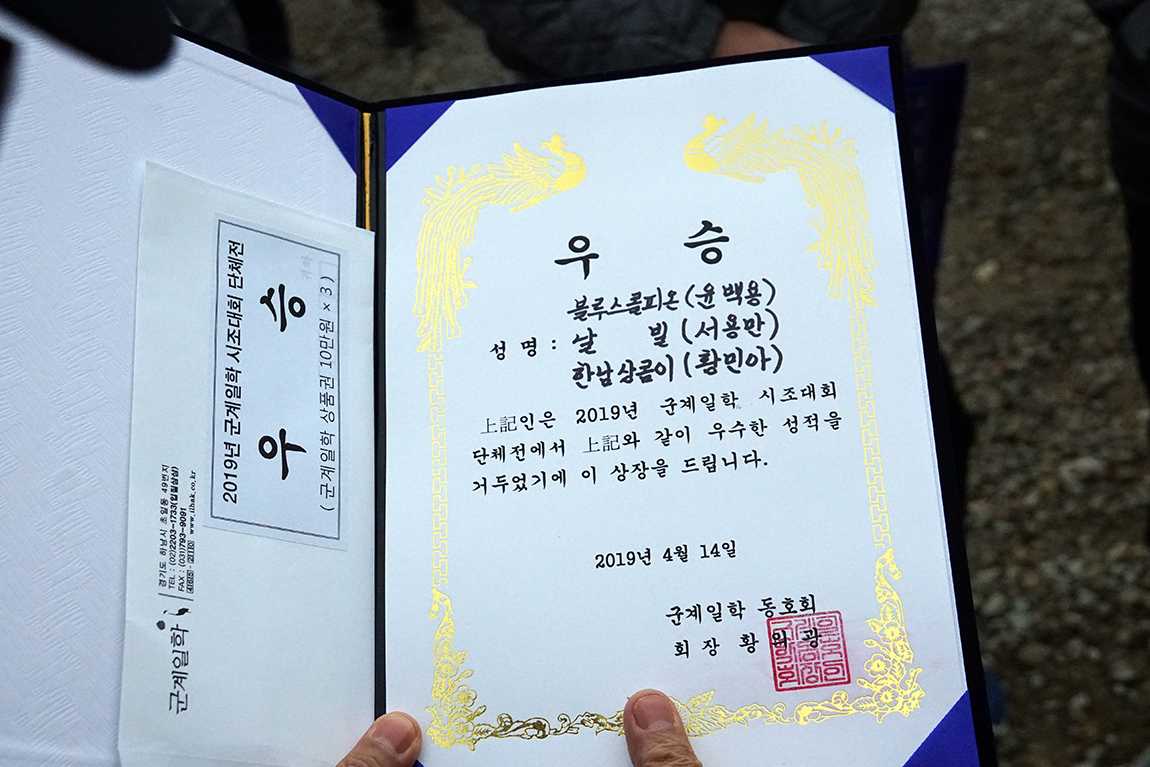 2019년 군계일학 시조대회 단체전
우 승
( 군계일학 상품권 10만원 × 3 )
군계일학
경기도 하남시 초일동 49번지
TEL : (02)2203-1733(입질삼삼)
FAX : (031)793-9091
www.ilhak.co.kr
우 승
블루스콜피온(윤백용)
성 명 : 날 빌 (서용만)
한남상곰이(황민아)
上記인은 2019년 군계일학 시조대회
단체전에서 上記와 같이 우수한 성적을
거두었기에 이 상장을 드립니다.
2019년 4월 14일
군계일학 동호회
회 장 황 의 광